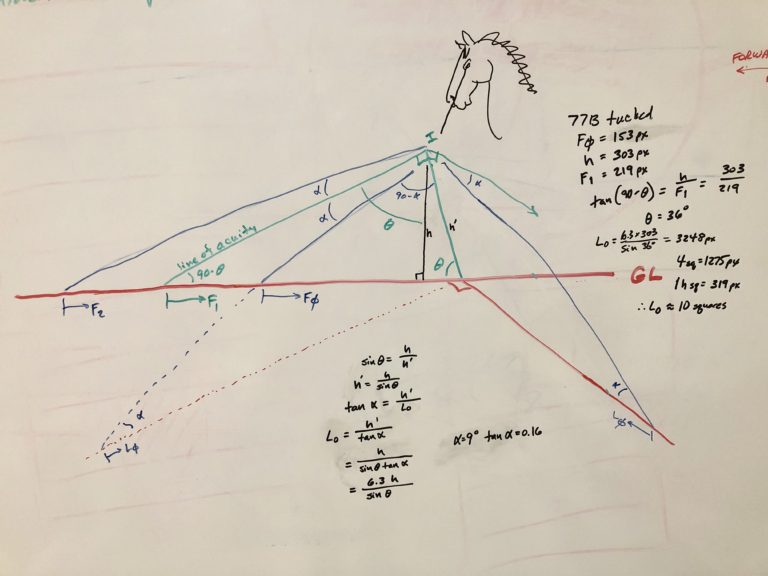 FORWA
I
77B tucked
Fφ = 153px
h = 303px
F₁ = 219px
tan(90-θ) = h/F₁ = 303/219
θ = 36°
L₀ = 6.3×303/sin 36° = 3248px
4sq = 1275px
1hsq = 319px
∴ L₀ ≈ 10 squares
α
α
90-α
α
line of acuity
θ
h
h'
90-θ
θ
GL
F₂
F₁
Fφ
sin θ = h/h'
h' = h/sin θ
tan α = h'/L₀
L₀ = h'/tan α
= h/sin θ tan α
= 6.3 h/sin θ
α=9° tan α=0.16
α
Lφ
α
Lφ